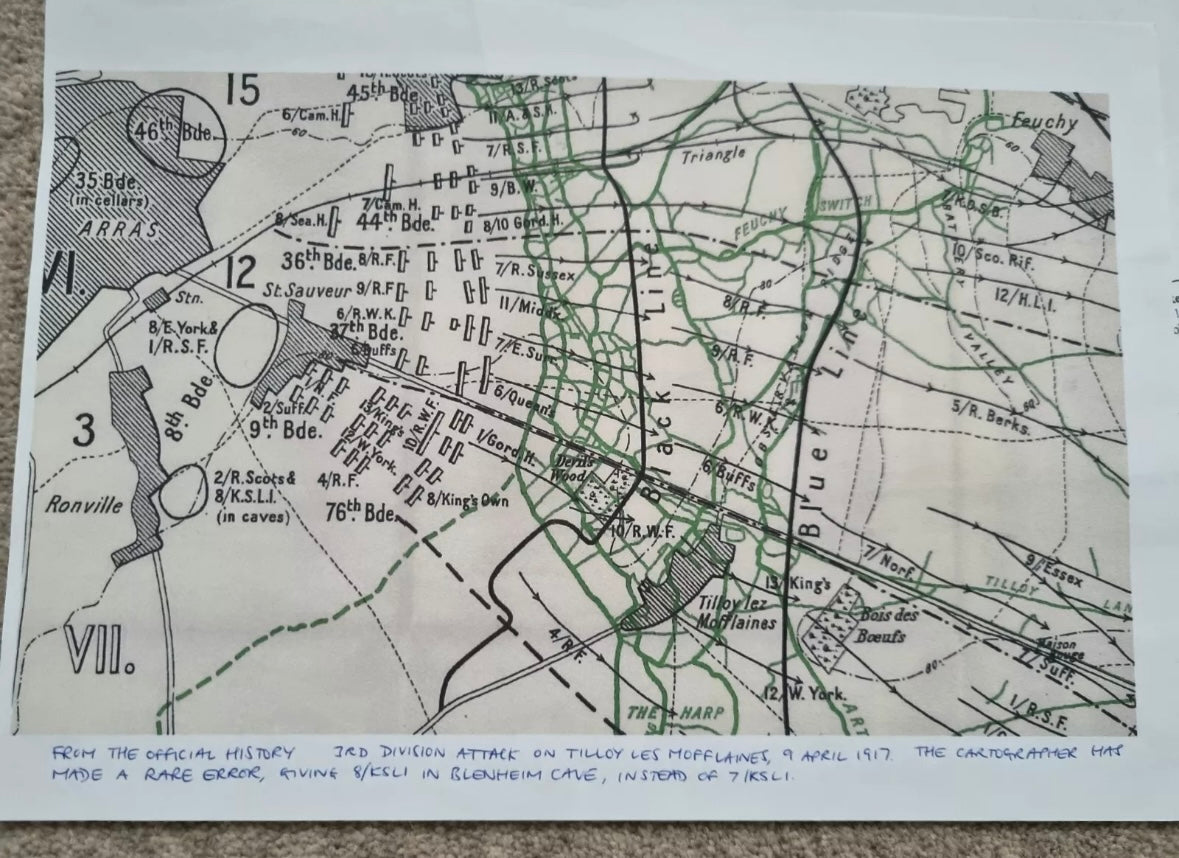 15
45th Bde.
13/R. Scots
6/Cam.H.
11/A.&S.H.
46th Bde.
60
7/R.S.F.
Feuchy
60
Triangle
35 Bde.
(in cellars)
ARRAS
9/B.W.
7/Cam.H.
8/Sea.H.
44th Bde.
8/10 Gord.H.
SWITCH
FEUCHY
BATTERY
VALLEY
VI.
12
36th Bde.
8/R.F.
7/R.Sussex
10/Sco. Rif.
Stn.
St.Sauveur
9/R.F.
11/Middx.
80
8/R.F.
12/H.L.I.
6/R.W.K.
37th Bde.
7/E.Surr.
9/R.F.
8/E.York&
1/R.S.F.
80
6/Buffs
6/Queen's
6/R.W.K.
5/R. Berks.
60
3
8th Bde.
2/Suff.
9th Bde.
13/King's
10/R.W.F.
1/Gord.H.
12/W. York.
Devil's
Wood
6/Buffs
Black Line
Blue Line
Ronville
2/R.Scots&
8/K.S.L.I.
(in caves)
4/R.F.
8/King's Own
76th Bde.
10/R.W.F.
7/Norf.
9/Essex
13/King's
TILLOY LAN
Tilloy lez
Mofflaines
Bois des
Bœufs
Maison
Rouge
4/R.F.
80
2/Suff.
VII.
12/W. York.
1/R.S.F.
THE HARP
FROM THE OFFICIAL HISTORY 3RD DIVISION ATTACK ON TILLOY LES MOFFLAINES, 9 APRIL 1917. THE CARTOGRAPHER HAS
MADE A RARE ERROR, GIVING 8/KSLI IN BLENHEIM CAVE, INSTEAD OF 7/KSLI.